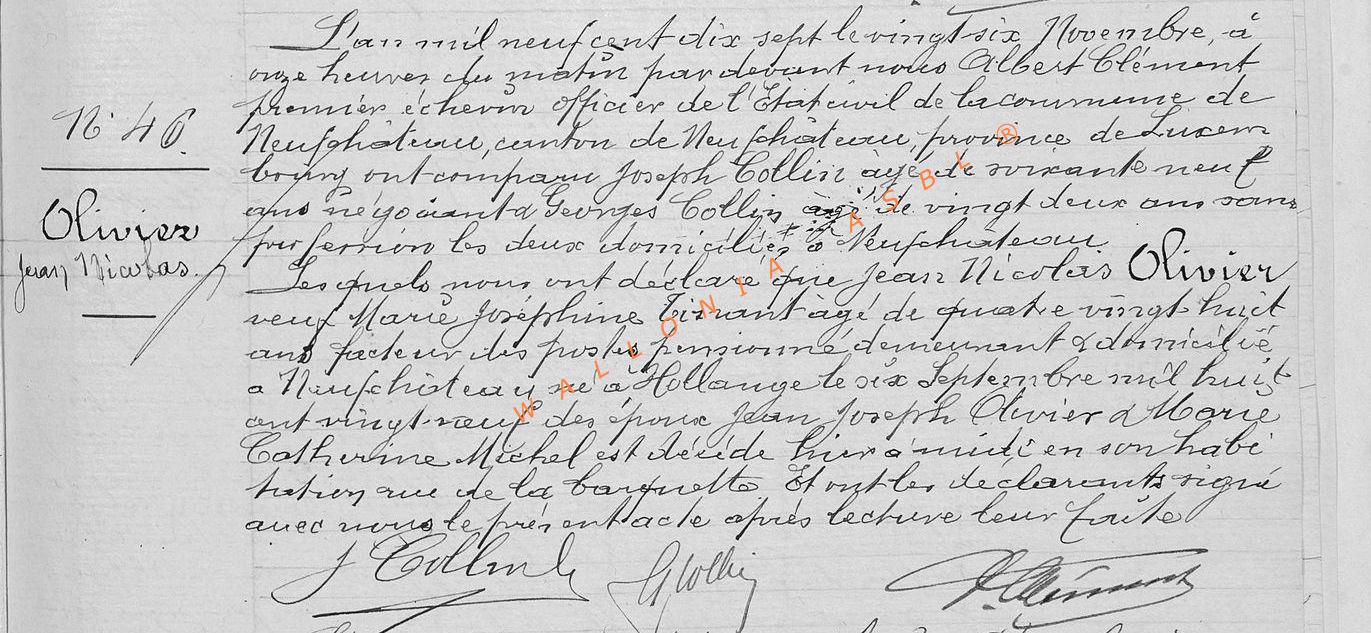 L'an mil neuf cent dix sept le vingt-six Novembre, à
onze heures du matin par devant nous Albert Clément
premier échevin officier de l'Etat civil de la commune de
N° 46.
Neufchâteau, canton de Neufchâteau, province de Luxem
bourg ont comparu Joseph Collin âgé de soixante neuf
ans négociant & Georges Collin âgé de vingt deux ans sans
Olivier
Jean Nicolas.
profession les deux domiciliés à Neufchâteau
Lesquels nous ont déclaré que Jean Nicolas Olivier
veuf Marie Joséphine Tinant âgé de quatre vingt huit
ans facteur des postes pensionné demeurant & domicilié
a Neufchâteau né à Hollange le six Septembre mil huit
cent vingt-neuf des époux Jean Joseph Olivier & Marie
Catherine Michel est décédé hier à midi en son habi
tation rue de la barquette Et ont les déclarants signé
avec nous le présent acte après lecture leur faite
J Collin
G Collin
A. Clément
WALLONIA ASBL ®